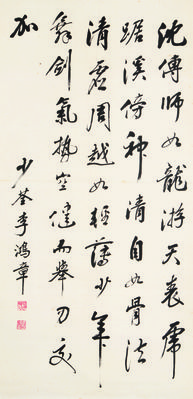 沈傳師如龍游天表虎
踞溪傍神清自如骨法
清虛周越如輕薄少年
舞劍氣勢空健而舉刃交
加
少荃李鴻章